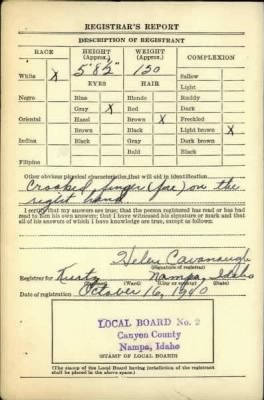 REGISTRAR'S REPORT
DESCRIPTION OF REGISTRANT
RACE HEIGHT (Approx.) WEIGHT (Approx.) COMPLEXION
White X 5' 8½" 150 Sallow
EYES HAIR Light
Negro Blue Blonde Ruddy
Gray X Red Dark
Oriental Hazel Brown X Freckled
Brown Black Light brown X
Indian Black Gray Dark brown
Bald Black
Filipino
Other obvious physical characteristics that will aid in identification
Crooked finger (fore) on the
right hand
I certify that my answers are true; that the person registered has read or has had
read to him his own answers; that I have witnessed his signature or mark and that
all of his answers of which I have knowledge are true, except as follows:
Helen Cavanaugh
(Signature of registrar)
Registrar for Nampa, Idaho
(Ward) (City or county) (State)
Date of registration October 16, 1940
LOCAL BOARD No. 2
Canyon County
Nampa, Idaho
(STAMP OF LOCAL BOARD)
(The stamp of the Local Board having jurisdiction of the registrant
shall be placed in the above space.)